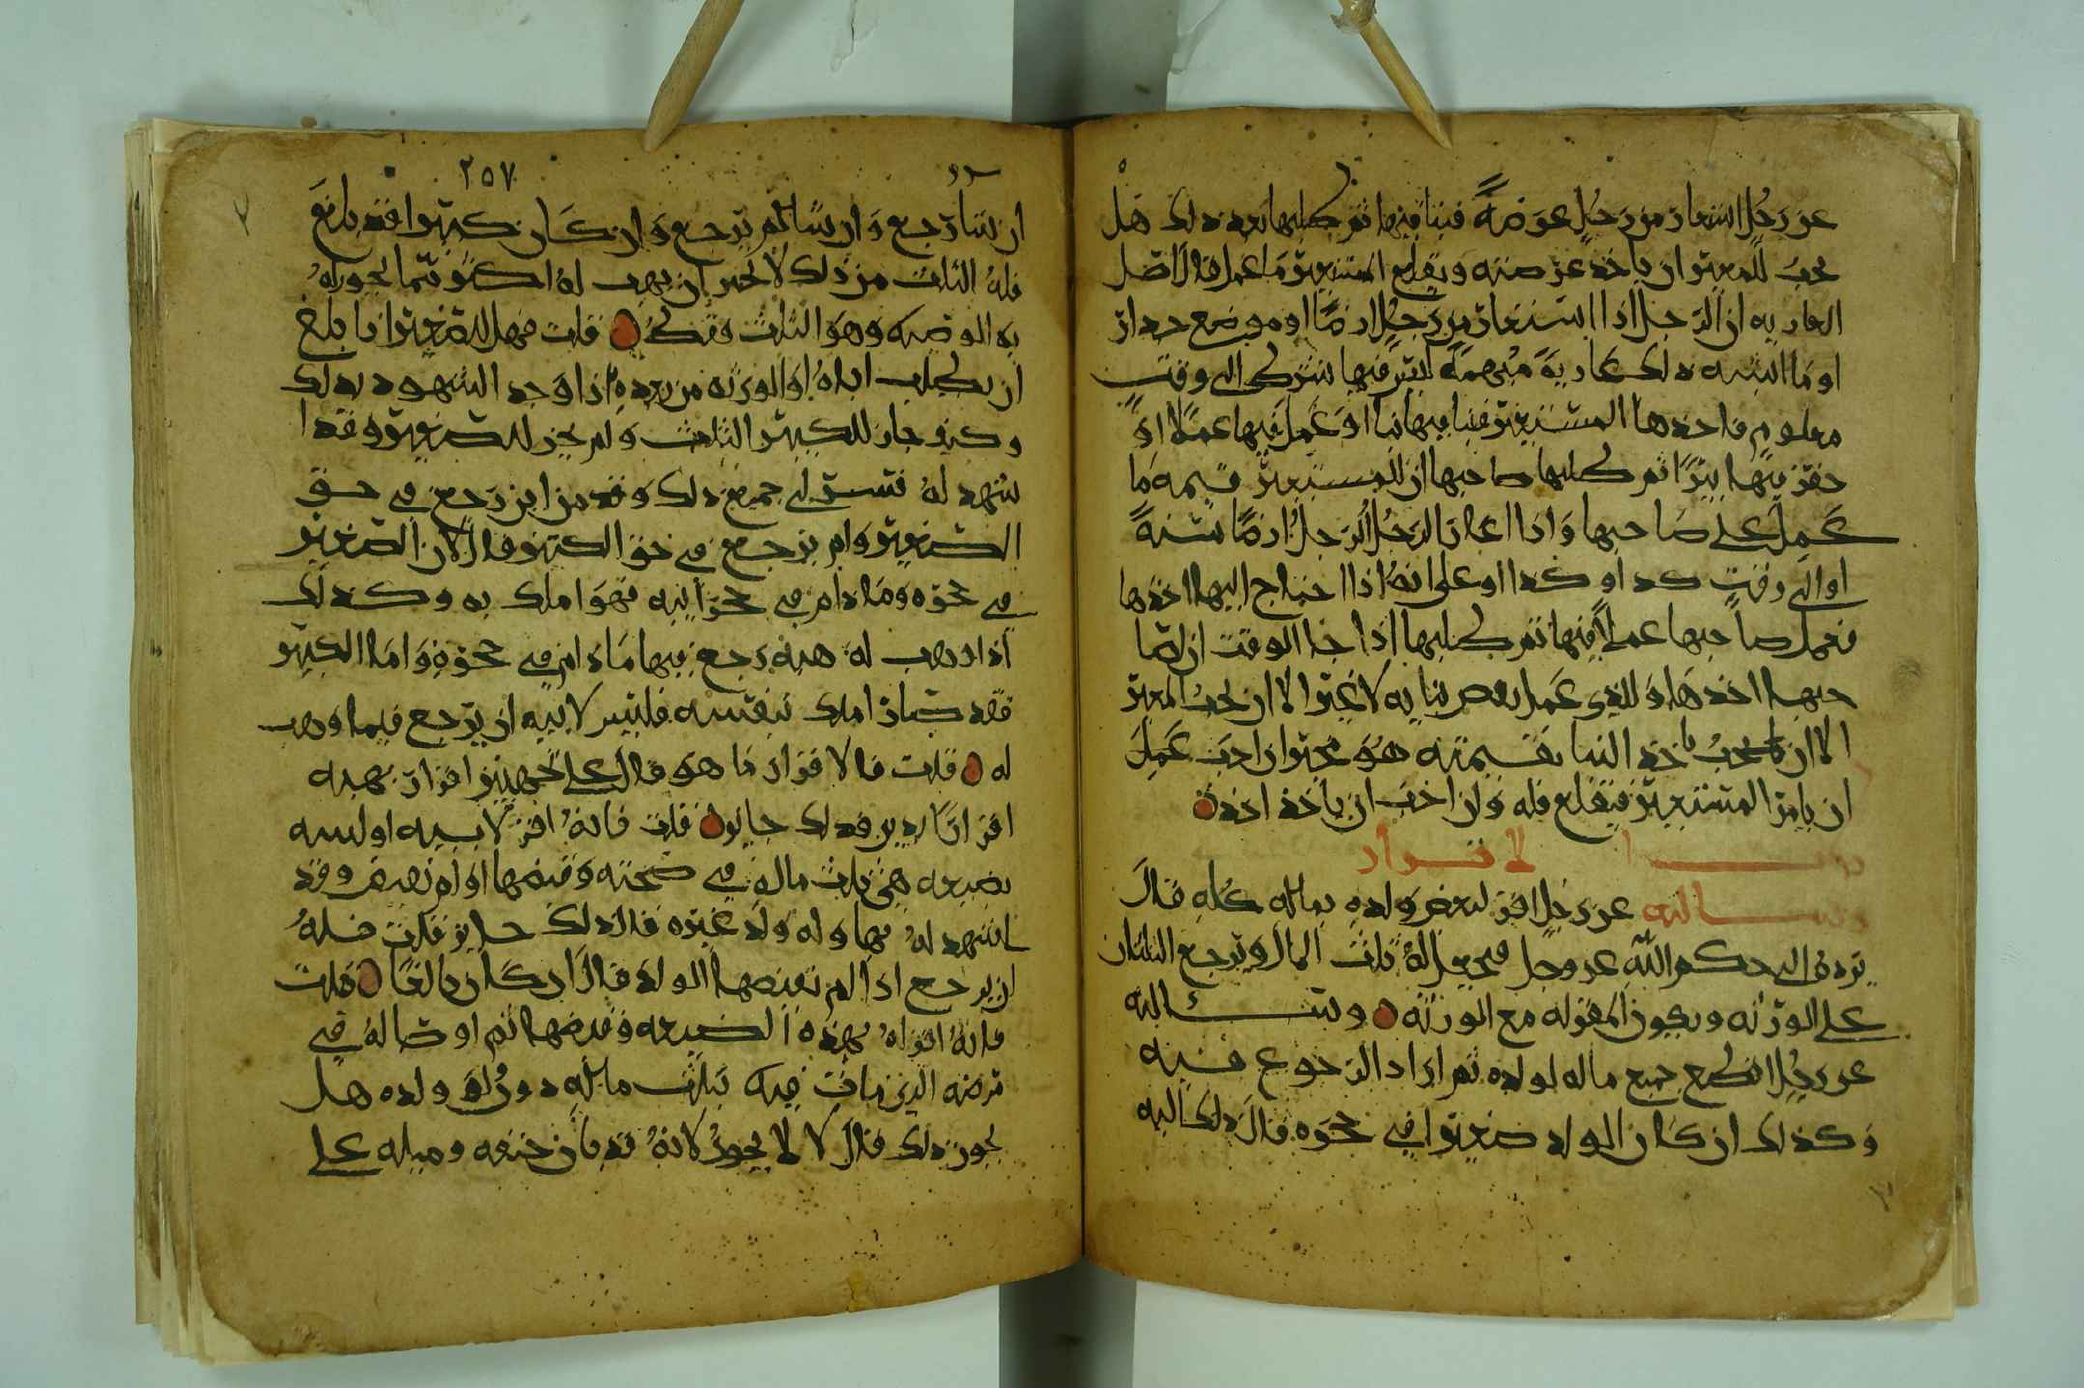 عن رجل استعار من رجل عرصة فبنا فيها ثم طلبها بعد ذلك هل
يجب للمعير ان ياخذ عرصته ويقلع المستعير ما عمل قال اصل
العاريه ان الرجل اذا استعار من رجل ارضا او موضع جدار
او ما اشبه ذلك عارية مبهمة ليس فيها شرط الى وقت
معلوم فاخذها المستعير فبنا فيها بنا او عمل فيها عملا او
حفر فيها بيرا ثم طلبها صاحبها ان للمستعير قيمه ما
عمل على صاحبها واذا اعار الرجل الرجل ارضا سنة
او الى وقت كذا او كذا او على انه اذا احتاج اليها اخذها
فعمل صاحبها عملا فيها ثم طلبها اذا جا الوقت ان لصا
حبها اخذها وللذي عمل نقض بنايه لا غير الا ان يحب المعير
الا ان يحب ياخذ البنا بقيمته هو مخير ان احب عمل
ان يامر المستعير فيقلع فله وان احب ان ياخذ اخذه
باب الاقرار
وسالته عن رجل اقر لبعض ولده بماله كله قال
يرده الى حكم الله عز وجل فيجعل له ثلث المال ويرجع الثلثان
على الورثه ويجوز المقر له مع الورثه وسالته
عن رجل اقطع جميع ماله لولده ثم اراد الرجوع فيه
وكذلك ان كان الولد صغيرا في حجره قال ذلك اليه
٢٥٧
ان شا رجع وان شا لم يرجع وان كان كبيرا قد بلغ
فله الثلث من ذلك لا يجوز ان يهب له اكثر مما يجوز له
به الوصيه وهو الثلث فقط قلت فهل للصغير اذا بلغ
ان يطلب اباه او الورثه من بعده اذا وجد الشهود بذلك
وكيف جاز للكبير الثلث ولم يجز للصغير وقد ا
شهد له فسق لي جميع ذلك وقد من اين رجع في حق
الصغير ولم يرجع في حق الكبير قال لان الصغير
في حجره وما دام في حجر ابيه فهو املك به وكذلك
اذا وهب له هبه رجع فيها ما دام في حجره واما الكبير
فقد صار املك بنفسه فليس لابيه ان يرجع فيما وهب
له قلت فالاقرار ما هو قال على جهتين اقرار بهبه
اقرارا بدين فذلك جايز قلت فانه اقر لابنيه او لبنيه
بضيعه هي ثلث ماله في صحته وقبضها او لم تقبض وقد
اشهد له بها وله ولد غيره قال ذلك جايز قلت فله
ان يرجع اذا لم يقبضها الولد قال اذا كان بالغا قلت
فانه اقر له بهذه الضيعه وقبضها ثم اوصا له في
مرضه الذي مات فيه بثلث ماله دون ولده هل
يجوز ذلك قال لا لا يجوز لانه قد بان حيفه وميله على